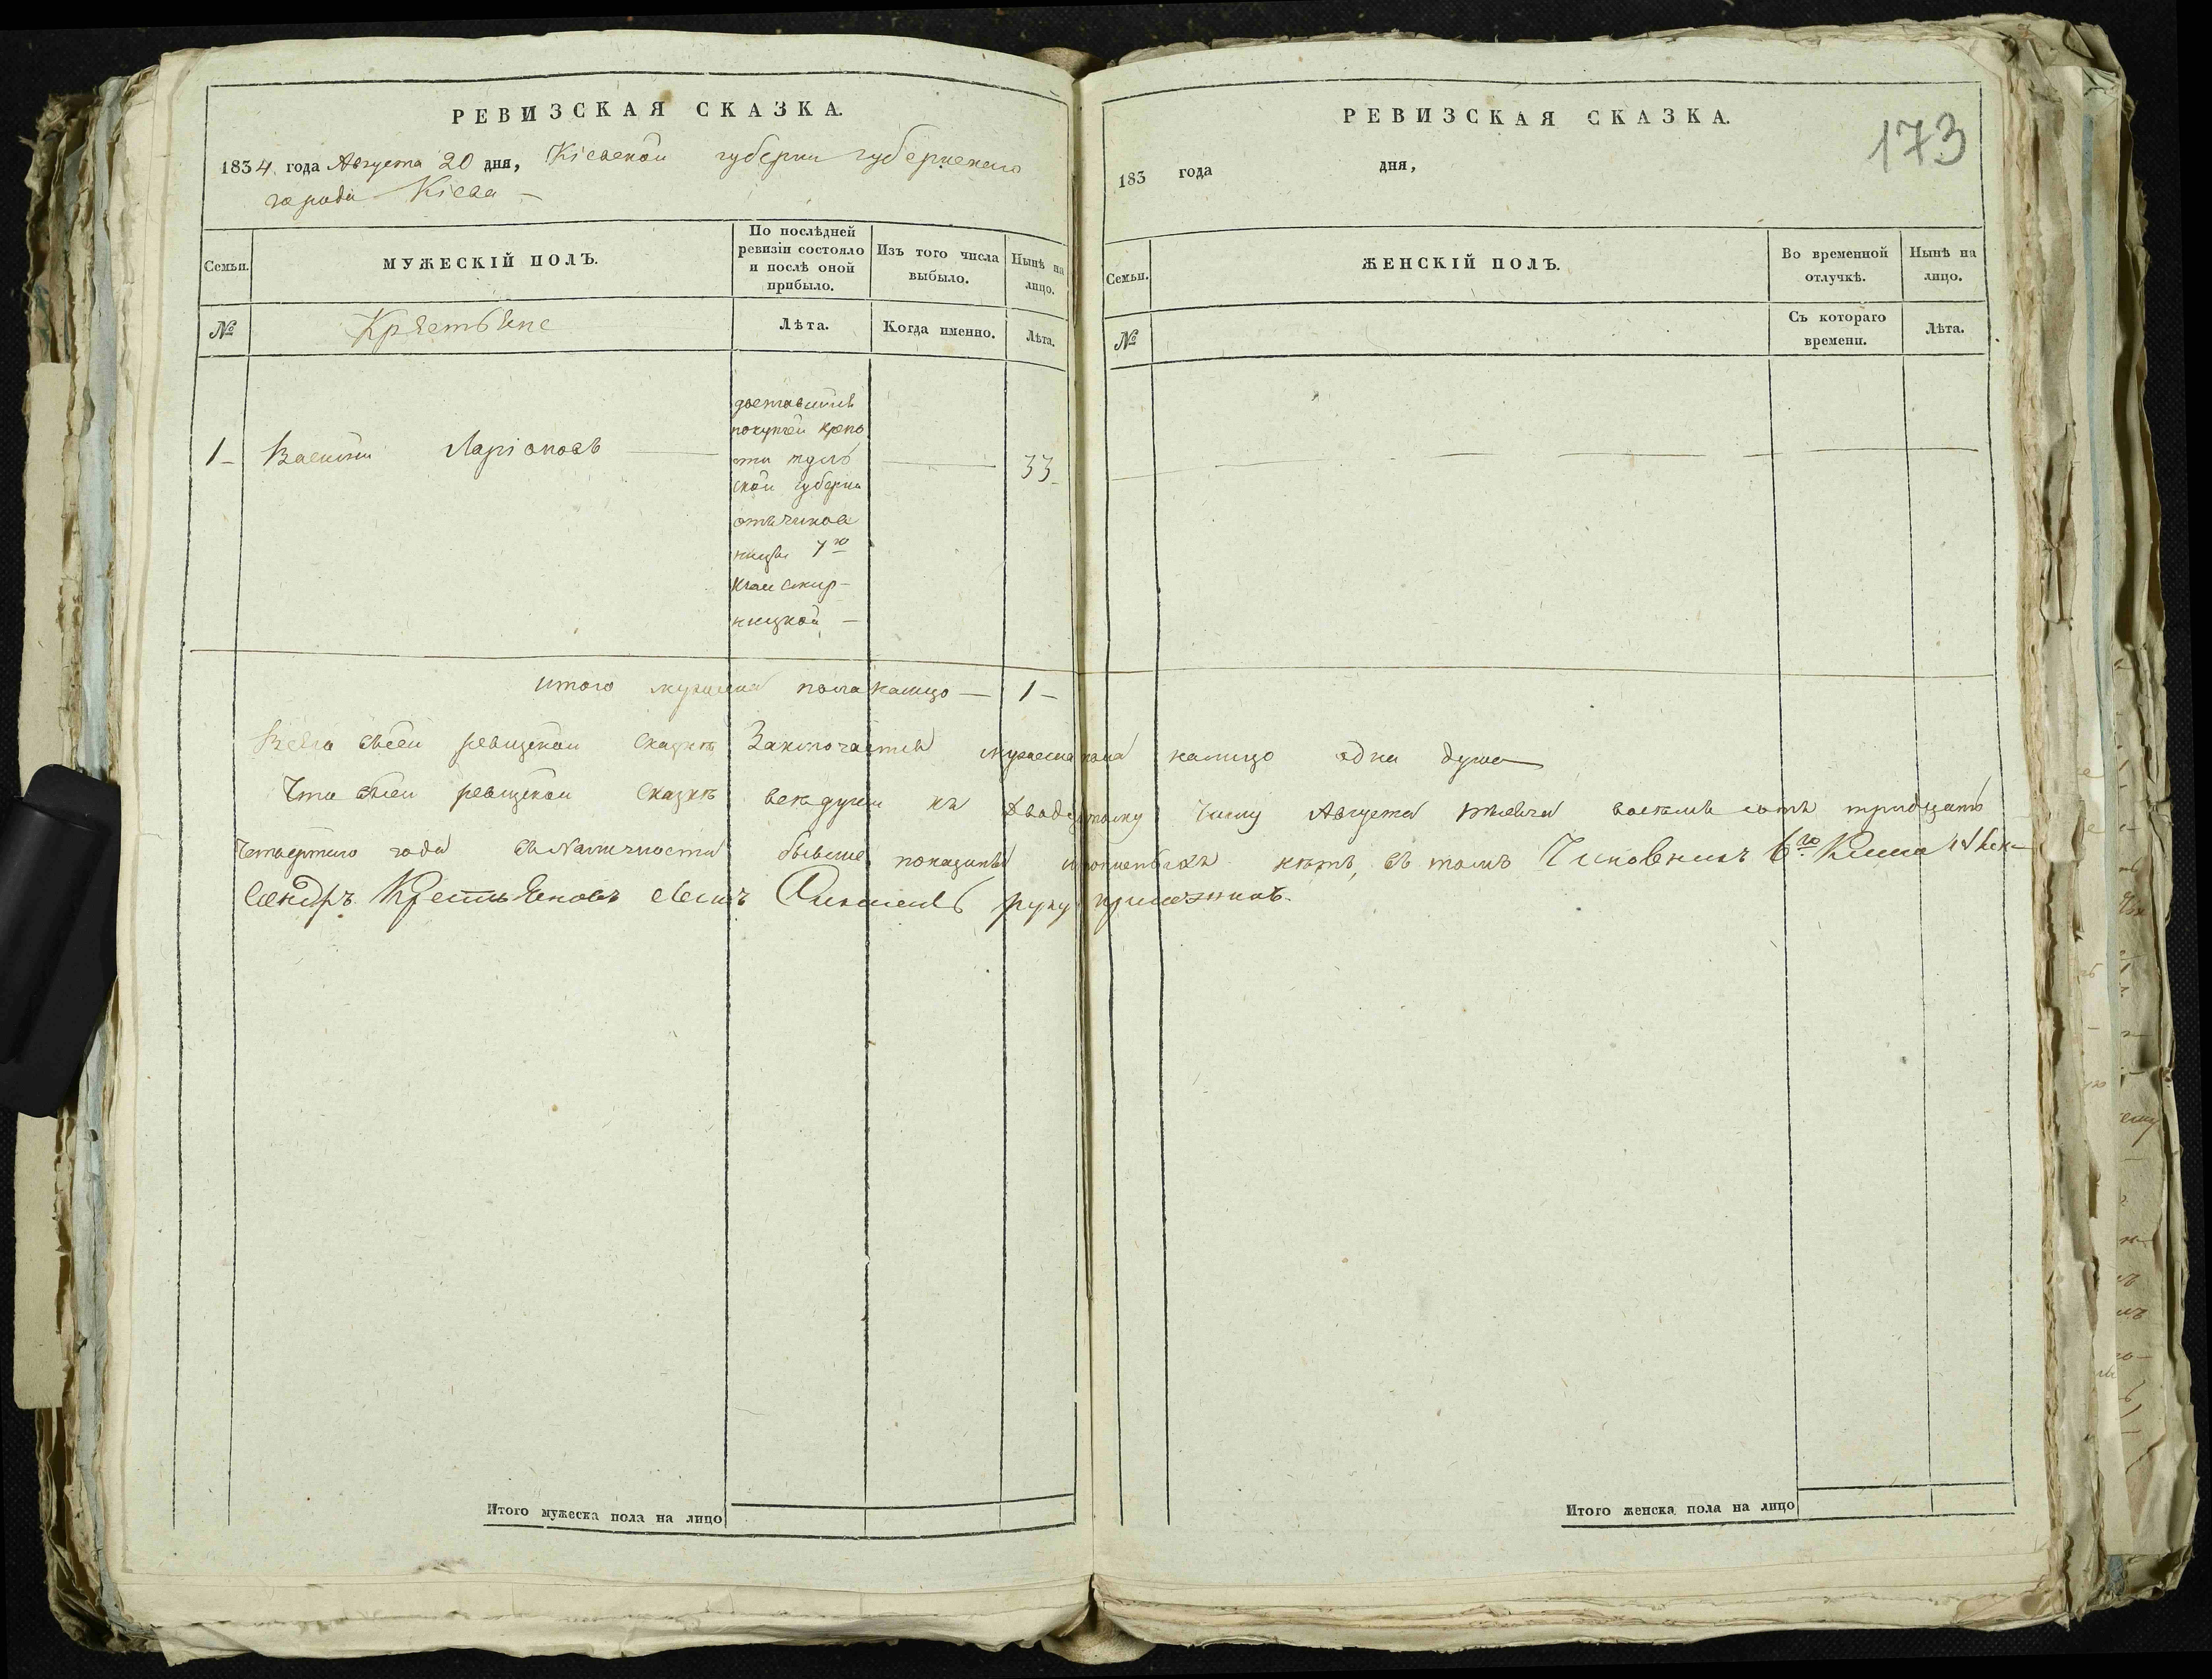 РЕВИЗСКАЯ СКАЗКА.
1834 года Августа 20 дня, Кіевской губерни губернскаго
города Кіева —
Семьи.
МУЖЕСКІЙ ПОЛЪ.
По послѣдней
ревизіи состояло
и послѣ оной
прибыло.
Изъ того числа
выбыло.
Нынѣ на
лицо.
№
Лѣта.
Когда именно.
Лѣта.
1 — Ларіоновъ — 33 —
достався
губерни
7го
итого мужеска пола налицо — 1 —
Всего въсей ревизской сказкѣ заключается мужеска пола налицо одна душа
Что въсей ревизской сказкѣ къ двадцатому числу Августа тысяча восемъ сотъ тридцать
четвертаго года въ наличности бывшие показаны и нѣтъ, въ томъ Чиновникъ 6го Класа Алек-
сандръ руку приложилъ.
Итого мужеска пола на лицо
РЕВИЗСКАЯ СКАЗКА.
173
183 года дня,
Семьи.
ЖЕНСКІЙ ПОЛЪ.
Во временной
отлучкѣ.
Нынѣ на
лицо.
№
Съ котораго
времени.
Лѣта.
Итого женска пола на лицо